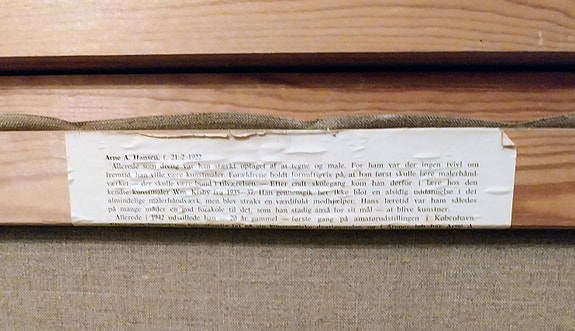 Arne A. Hansen, f. 21-2-1922
Allerede som dreng var han stærkt optaget af at tegne og male. For ham var der ingen tvivl om
fremtid, han ville være kunstmaler. Forældrene holdt fornuftigvis på, at han først skulle lære malerhånd-
værket — der skulle være bund i tilværelsen. — Efter endt skolegang kom han derfor i lære hos den
kendte kunstmaler Wm. fra Han gennemgik her ikke blot en alsidig uddannelse i det
almindelige malerhåndværk, men blev straks en værdifuld medhjælper. Hans læretid var således
på mange måder en god forskole til det, som han stadig anså for sit mål — at blive kunstner.
Allerede i 1942 udstillede han — 20 år gammel — første gang på amatørudstillingen i København